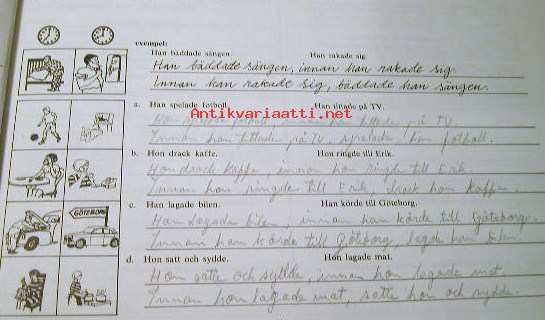 exempel:
Han bäddade sängen. Han rakade sig.
Han bäddade sängen, innan han rakade sig.
Innan han rakade sig, bäddade han sängen.
a. Han spelade fotboll. Han tittade på TV.
Antikvariaatti.net
han tittade på TV.
Innan han tittade på TV, spelade han fotboll.
b. Hon drack kaffe. Hon ringde till Erik.
Hon drack kaffe, innan hon ringde till Erik.
Innan hon ringde till Erik, drack hon kaffe.
GÖTEBORG
c. Han lagade bilen. Han körde till Göteborg.
Han lagade bilen, innan han körde till Göteborg.
Innan han körde till Göteborg, lagde han bilen.
d. Hon satt och sydde. Hon lagade mat.
Hon satte och sydde, innan hon lagade mat.
Innan hon lagade mat, satte hon och sydde.